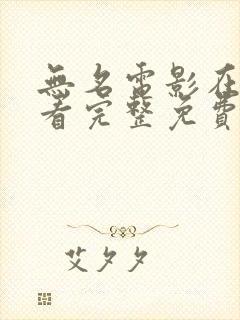 無名電影在
看完整免費
艾夕夕